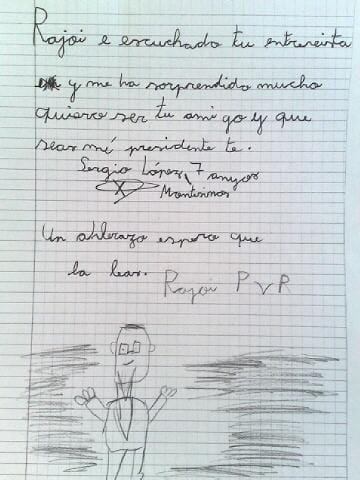 Rajoi e escuchado tu entrevista
y me ha sorprendido mucho
quiero ser tu ami go y que
seas mi presidente te.
Sergio López 7 anyos
X Montesinos
Un abrazo espero que
la leas. Rajoi P V R